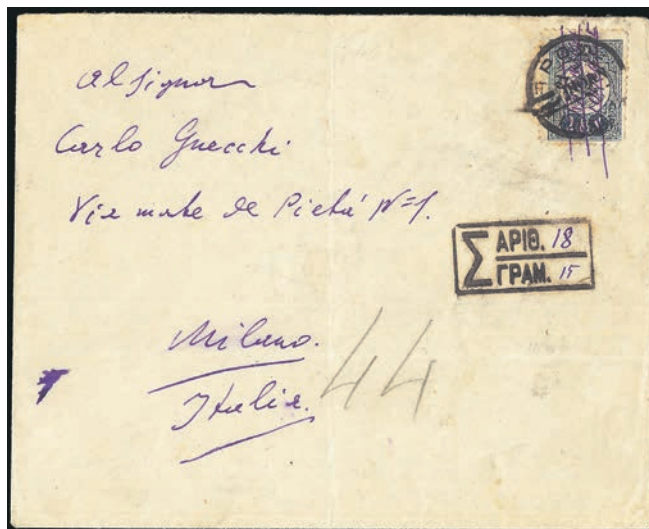 Al Signor
Carlo Gnecchi
Via monte de Pietá N=1.
Σ ΑΡΙΘ. 18
ΓΡΑΜ. 15
Milano.
Italia.
44